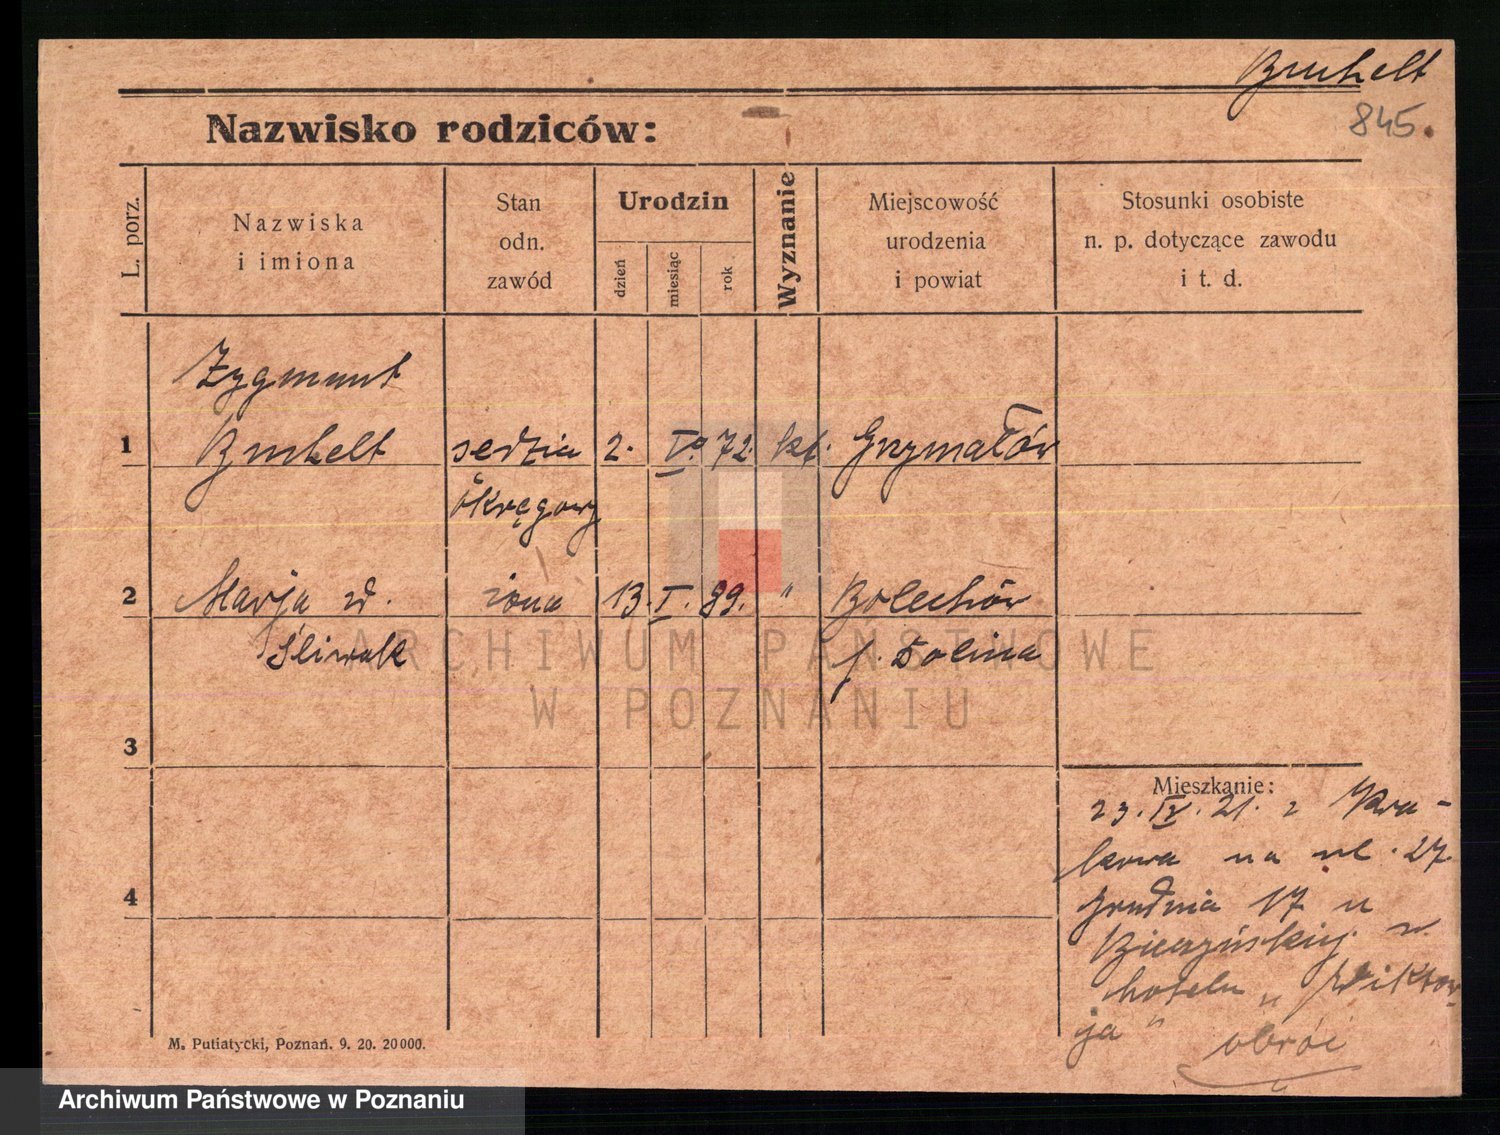 Bruhelt
845.
Nazwisko rodziców:
L. porz.
Nazwiska
i imiona
Stan
odn.
zawód
Urodzin
dzień
miesiąc
rok
Wyznanie
Miejscowość
urodzenia
i powiat
Stosunki osobiste
n. p. dotyczące zawodu
i t. d.
Zygmunt
1 Bruhelt sędzia 2. V. 72. kt. Grzymałów
okręgowy
2 Marja w. żona 13. I. 89. " Bolechów
Śliwak p. Dolina
3
Mieszkanie:
23. IX. 21. z Kra-
kowa na ul. 27.
4
grudnia 17 u
w
hotelu „Wiktor-
ja"
obróć
M. Putiatycki, Poznań. 9. 20. 20000.
ARCHIWUM PAŃSTWOWE
W POZNANIU
Archiwum Państwowe w Poznaniu